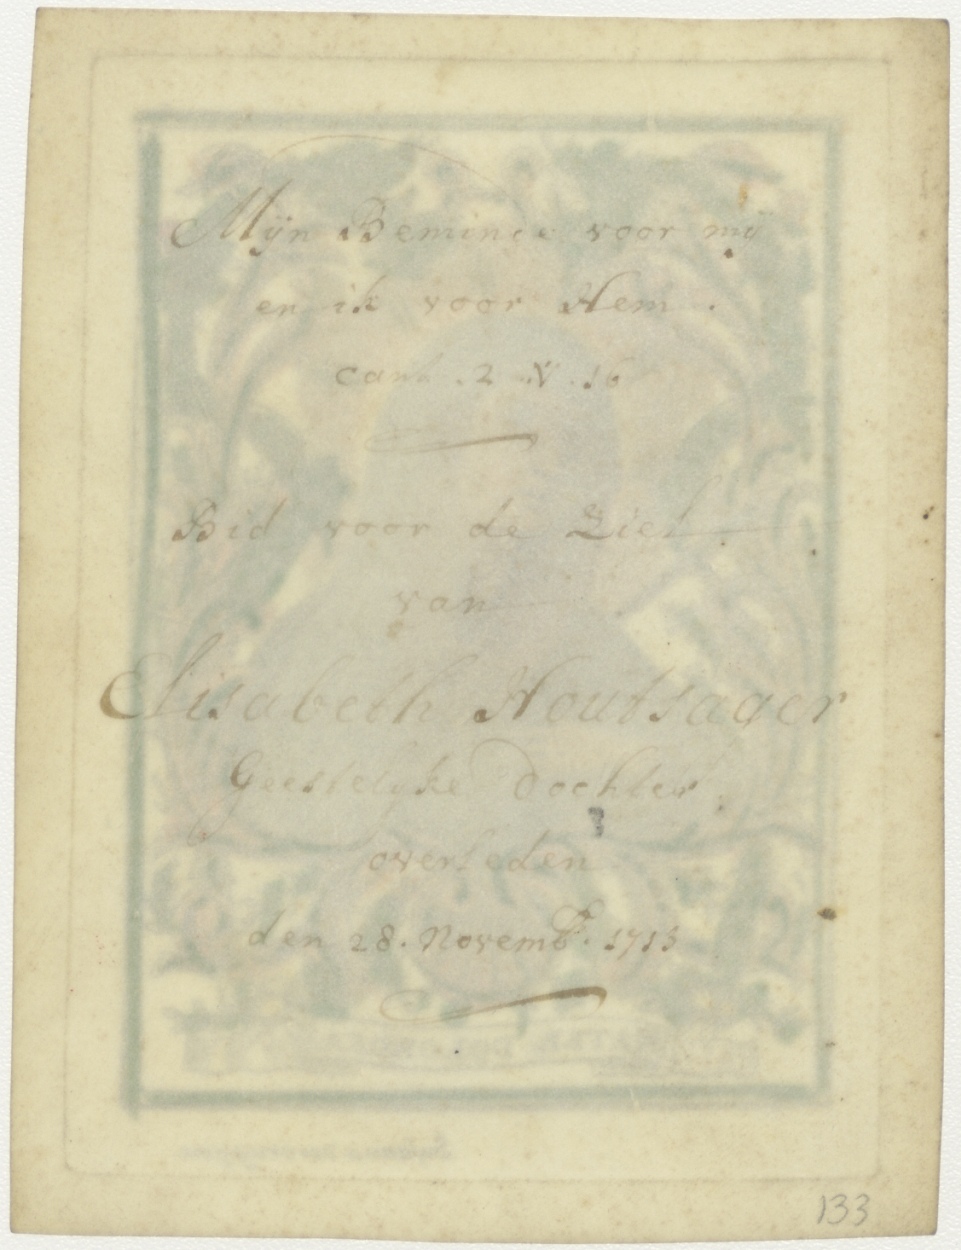 Mijn Beminde voor mij
en ik voor Hem.
cant. 2. V. 16
Bid voor de Ziel
van
Elisabeth Houtsager
Geestelyke Dochter.
overleden
den 28. Novemb.^r 1713
133